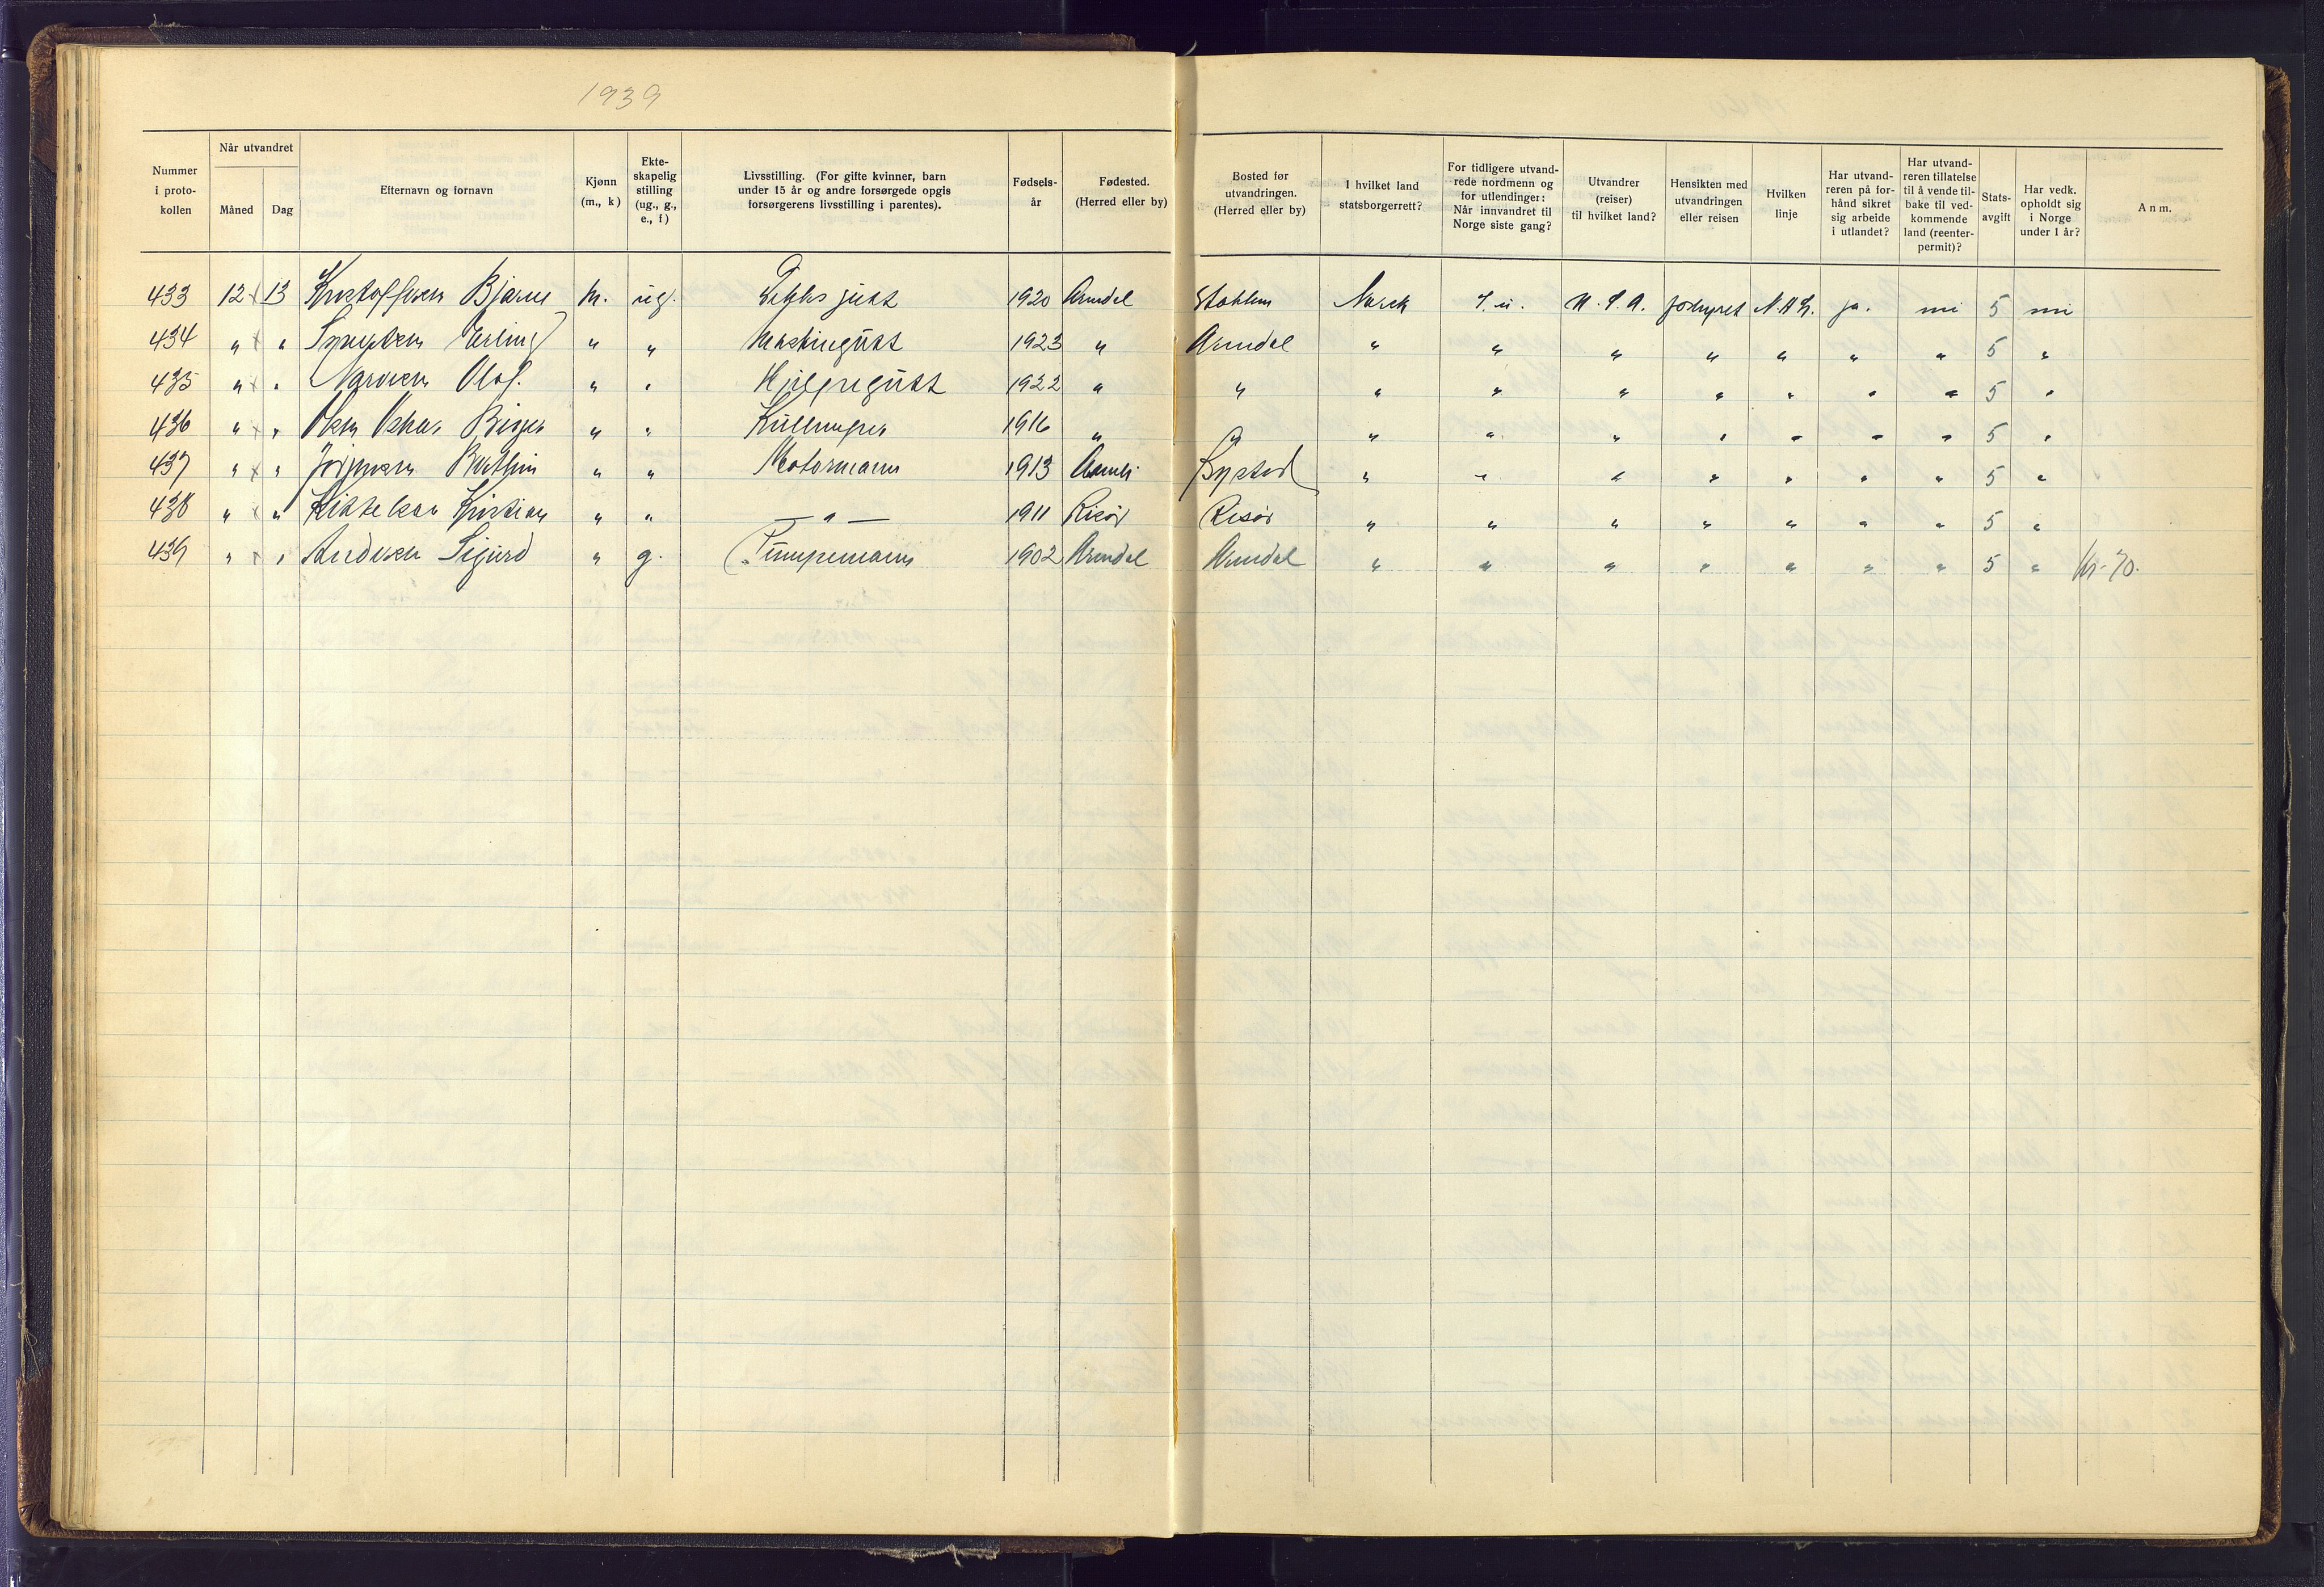 1939
Nummer i proto- kollen
Når utvandret
Måned
Dag
Efternavn og fornavn
Kjønn (m., k)
Ekte- skapelig stilling (ug., g., e., f)
Livsstilling. (For gifte kvinner, barn under 15 år og andre forsørgede opgis forsørgerens livsstilling i parentes).
Fødsels- år
Fødested. (Herred eller by)
Bosted før utvandringen. (Herred eller by)
I hvilket land statsborgerrett?
For tidligere utvand- rede nordmenn og for utlendinger: Når innvandret til Norge siste gang?
Utvandrer (reiser) til hvilket land?
Hensikten med utvandringen eller reisen
Hvilken linje
Har utvand- reren på for- hånd sikret sig arbeide i utlandet?
Har utvand- reren tillatelse til å vende til- bake til ved- kommende land (reenter- permit)?
Stats- avgift
Har vedk. opholdt sig i Norge under 1 år?
Anm.
433 12 13 Kristoffersen Bjarne M. ug. Dekksgutt 1920 Arendal Norsk U.S.A. forhyret ja. nei 5 nei
434 " " Erling " " Maskingutt 1923 " Arendal " " " " " " " 5 "
435 " " Olaf. " " 1922 " " " " " " " " " 5 "
436 " " Olsen Oskar Birger " " Kullemper 1916 " " " " " " " " " 5 "
437 " " " " Motormann 1913 Øyestad " " " " " " " 5 "
438 " " Kittelsen Kristian " " — " — 1911 Risør Risør " " " " " " " 5 "
439 " " Andersen Sigurd " g. Pumpemann 1902 Arendal Arendal " " " " " " " 5 "